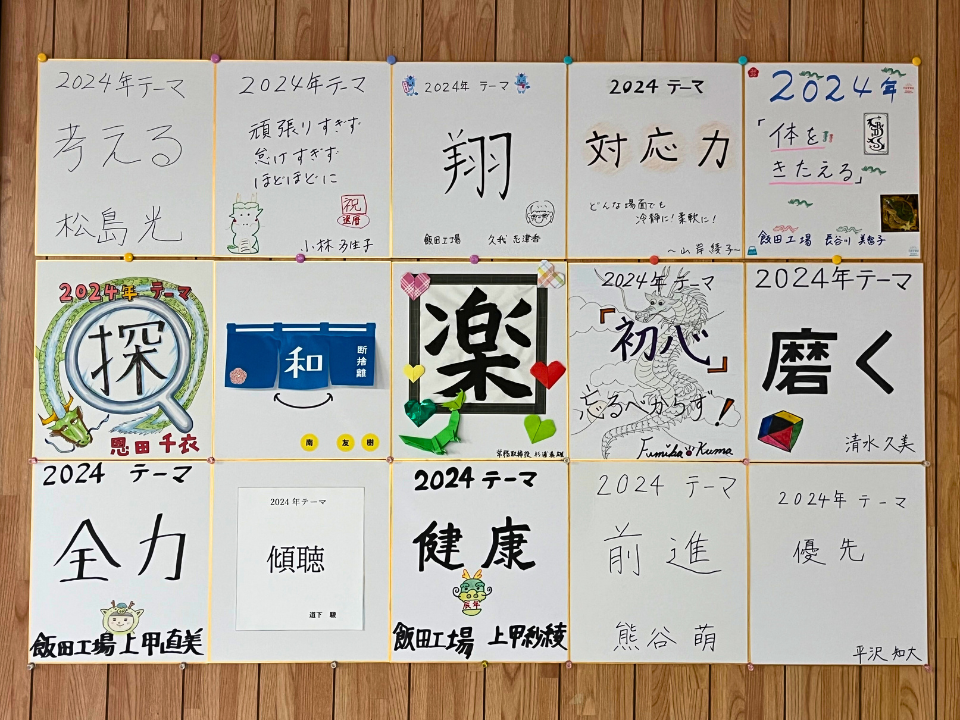 2024年テーマ
考える
松島 光
2024年テーマ
頑張りすぎず
怠けすぎず
ほどほどに
祝
還暦
小林
2024年 テーマ
翔
飯田工場
2024 テーマ
対応力
どんな場面でも
冷静に!柔軟に!
~山岸綾子~
2024年
「体を
きたえる」
飯田工場 長谷川
2024年 テーマ
探
恩田 千衣
和
断捨離
南 友樹
楽
常務取締役
2024年テーマ
「初心」
忘るべからず!
Fumika Kuma
2024年テーマ
磨く
清水久美
2024 テーマ
全力
飯田工場 上甲直美
2024年テーマ
傾聴
道下 駿
2024 テーマ
健康
辰年
飯田工場 上甲紗綾
2024 テーマ
前進
熊谷 萌
2024年 テーマ
優先
平沢 知大